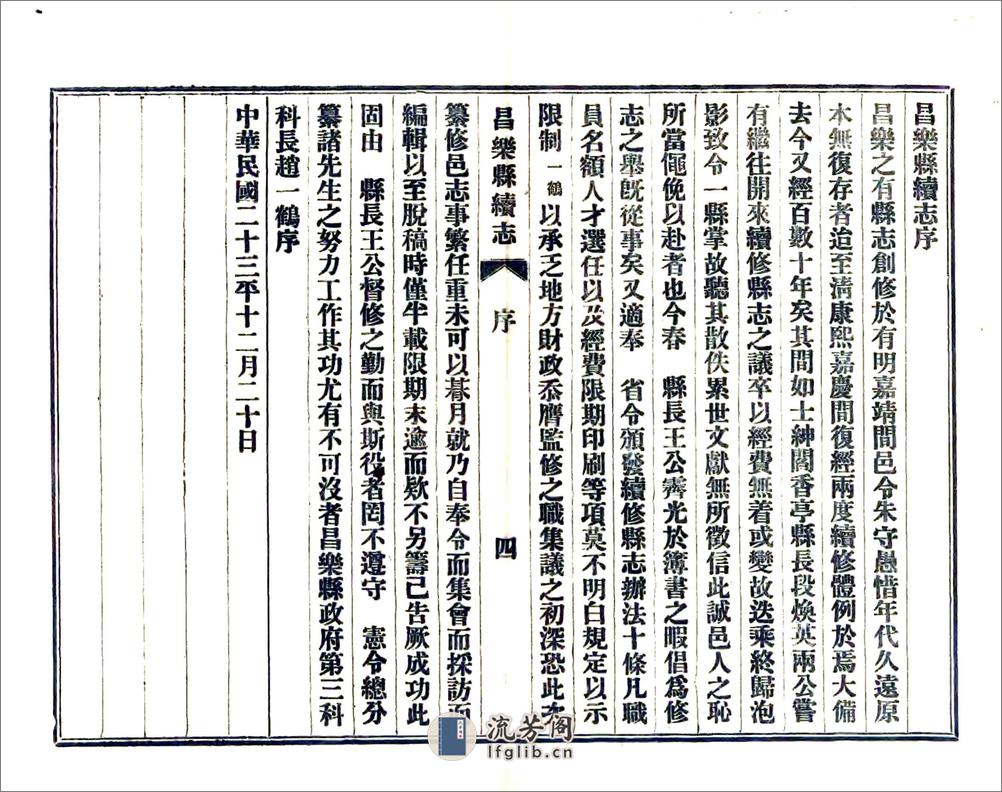 昌樂縣續志序
昌樂之有縣志創修於有明嘉靖間邑令朱守愚惜年代久遠原
本無復存者迨至淸康熙嘉慶間復經兩度續修體例於焉大備
去今又經百數十年矣其間如士紳閻香亭縣長段煥英兩公嘗
有繼往開來續修縣志之議卒以經費無着或變故迭乘終歸泡
影致令一縣掌故聽其散佚累世文獻無所徵信此誠邑人之恥
所當僶俛以赴者也今春　縣長王公霽光於簿書之暇倡爲修
志之舉旣從事矣又適奉　省令頒發續修縣志辦法十條凡職
員名額人才選任以及經費限期印刷等項莫不明白規定以示
限制一鶴以承乏地方財政忝膺監修之職集議之初深恐此次
昌樂縣續志　序　四
纂修邑志事繁任重未可以朞月就乃自奉令而集會而採訪而
編輯以至脫稿時僅半載限期未逾而欵不另籌已告厥成功此
固由　縣長王公督修之勤而與斯役者罔不遵守　憲令總分
纂諸先生之努力工作其功尤有不可沒者昌樂縣政府第三科
科長趙一鶴序
中華民國二十三年十二月二十日
流芳阁
lfglib.cn